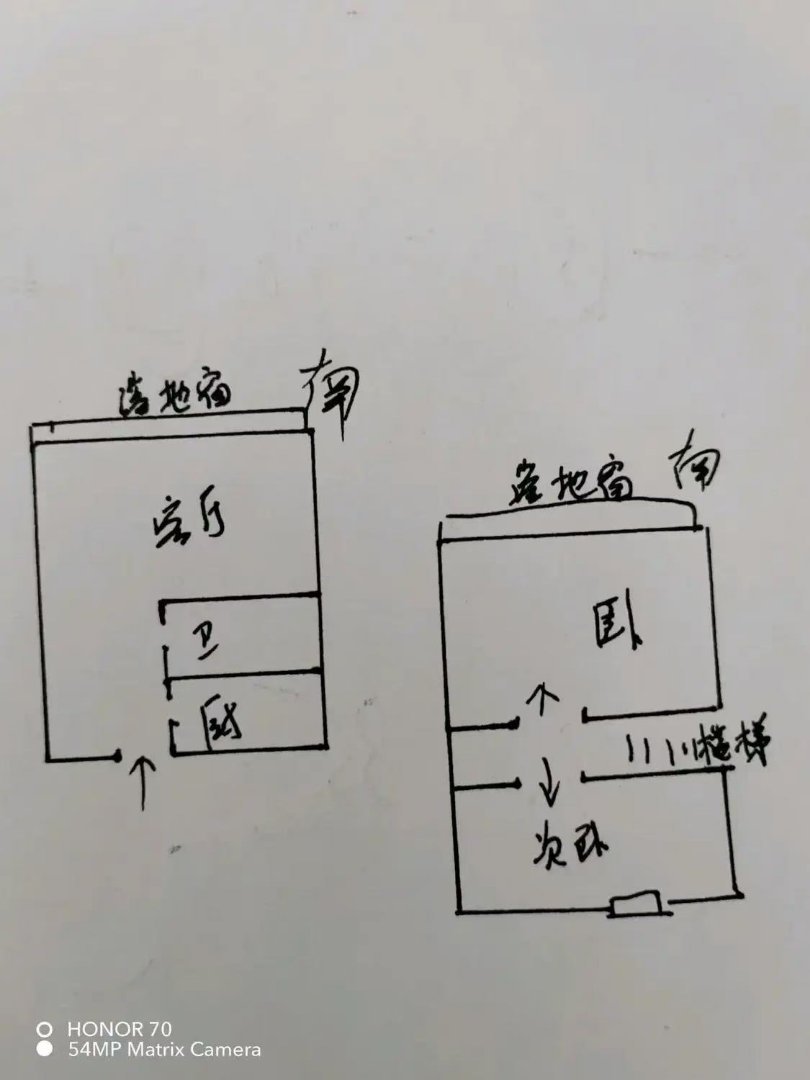 落地窗 南
客厅
卫
厨
落地窗 南
卧
楼梯
次卧
HONOR 70
54MP Matrix Camera